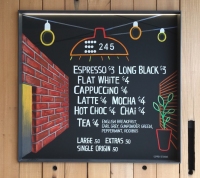 245
ESPRESSO $3 LONG BLACK $3
FLAT WHITE $4
CAPPUCCINO $4
LATTE $4 MOCHA $4
HOT CHOC $4 CHAI $4
TEA $4 ENGLISH BREAKFAST,
EARL GREY, GUNPOWDER GREEN,
PEPPERMINT, ROOIBOS
LARGE .50 EXTRAS .50
SINGLE ORIGIN .50